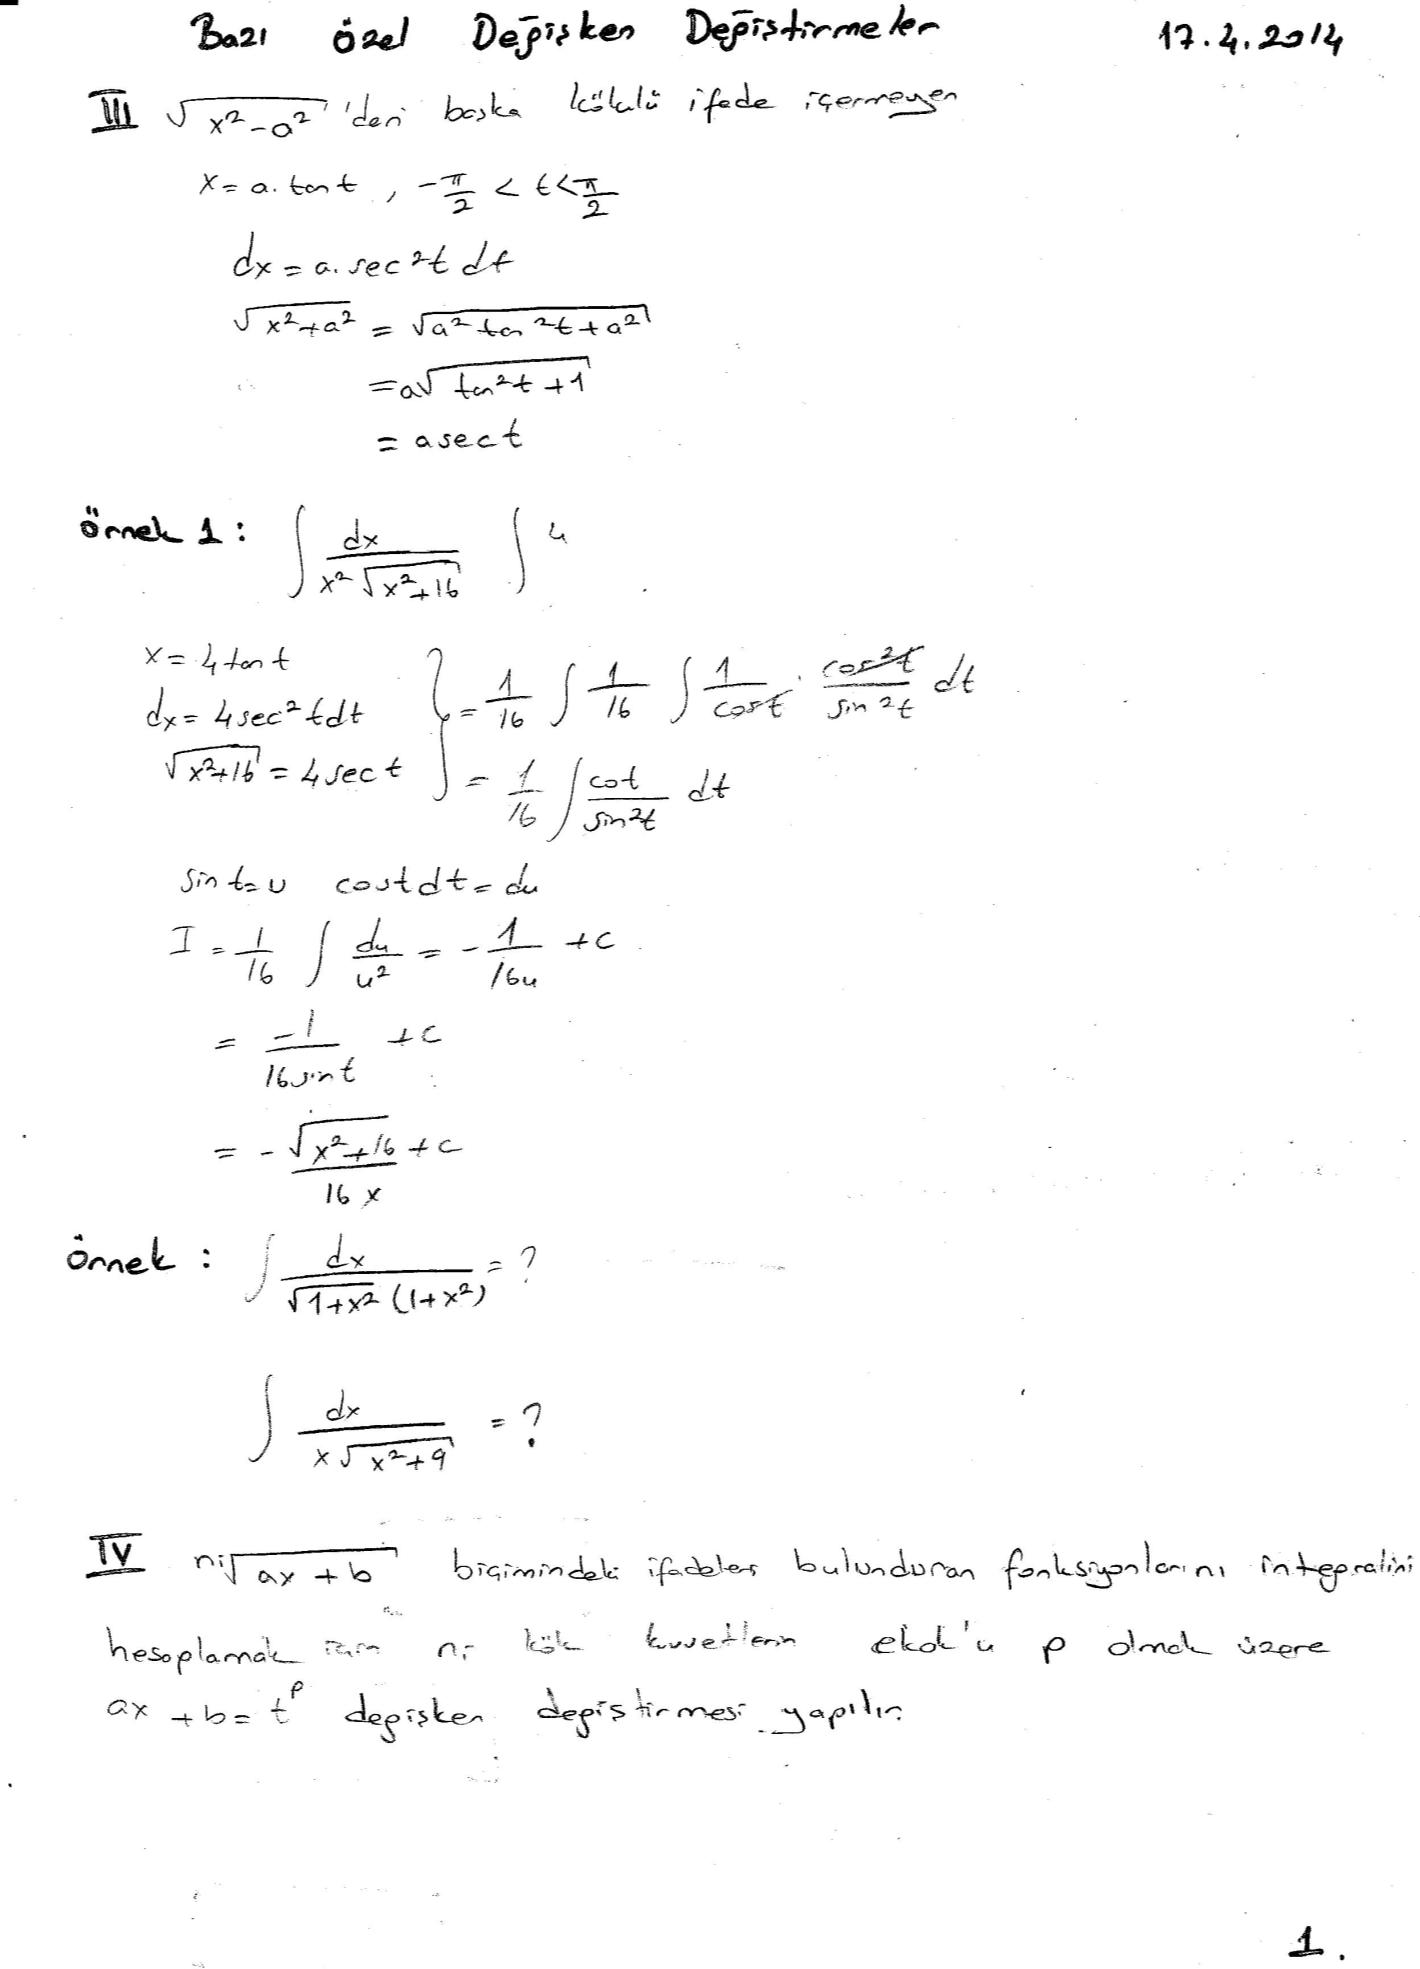 Bazı özel Değişken Değiştirmeler 17.4.2014
III √(x²-a²) 'den başka köklü ifade içermeyen
x = a.tant , -π/2 < t < π/2
dx = a.sec²t dt
√(x²+a²) = √(a²tan²t+a²)
= a√(tan²t+1)
= asect
örnek 1: ∫ dx / (x²√(x²+16)) ∫ 4
x = 4tant
dx = 4sec²tdt
√(x²+16) = 4sect
} = 1/16 ∫ 1/16 ∫ 1/cost . cos²t/sin²t dt
= 1/16 ∫ cot/sin²t dt
sint=u costdt=du
I = 1/16 ∫ du/u² = -1/16u +c
= -1/16sint +c
= -√(x²+16)/16x +c
örnek : ∫ dx / (√(1+x²) (1+x²)) = ?
∫ dx / (x√(x²+9)) = ?
IV ⁿⁱ√(ax+b) biçimindeki ifadeler bulunduran fonksiyonlarını integralini
hesaplamak için ni kök kuvetlerin ekok'u p olmak üzere
ax+b=t^p değişken değiştirmesi yapılır.
1.